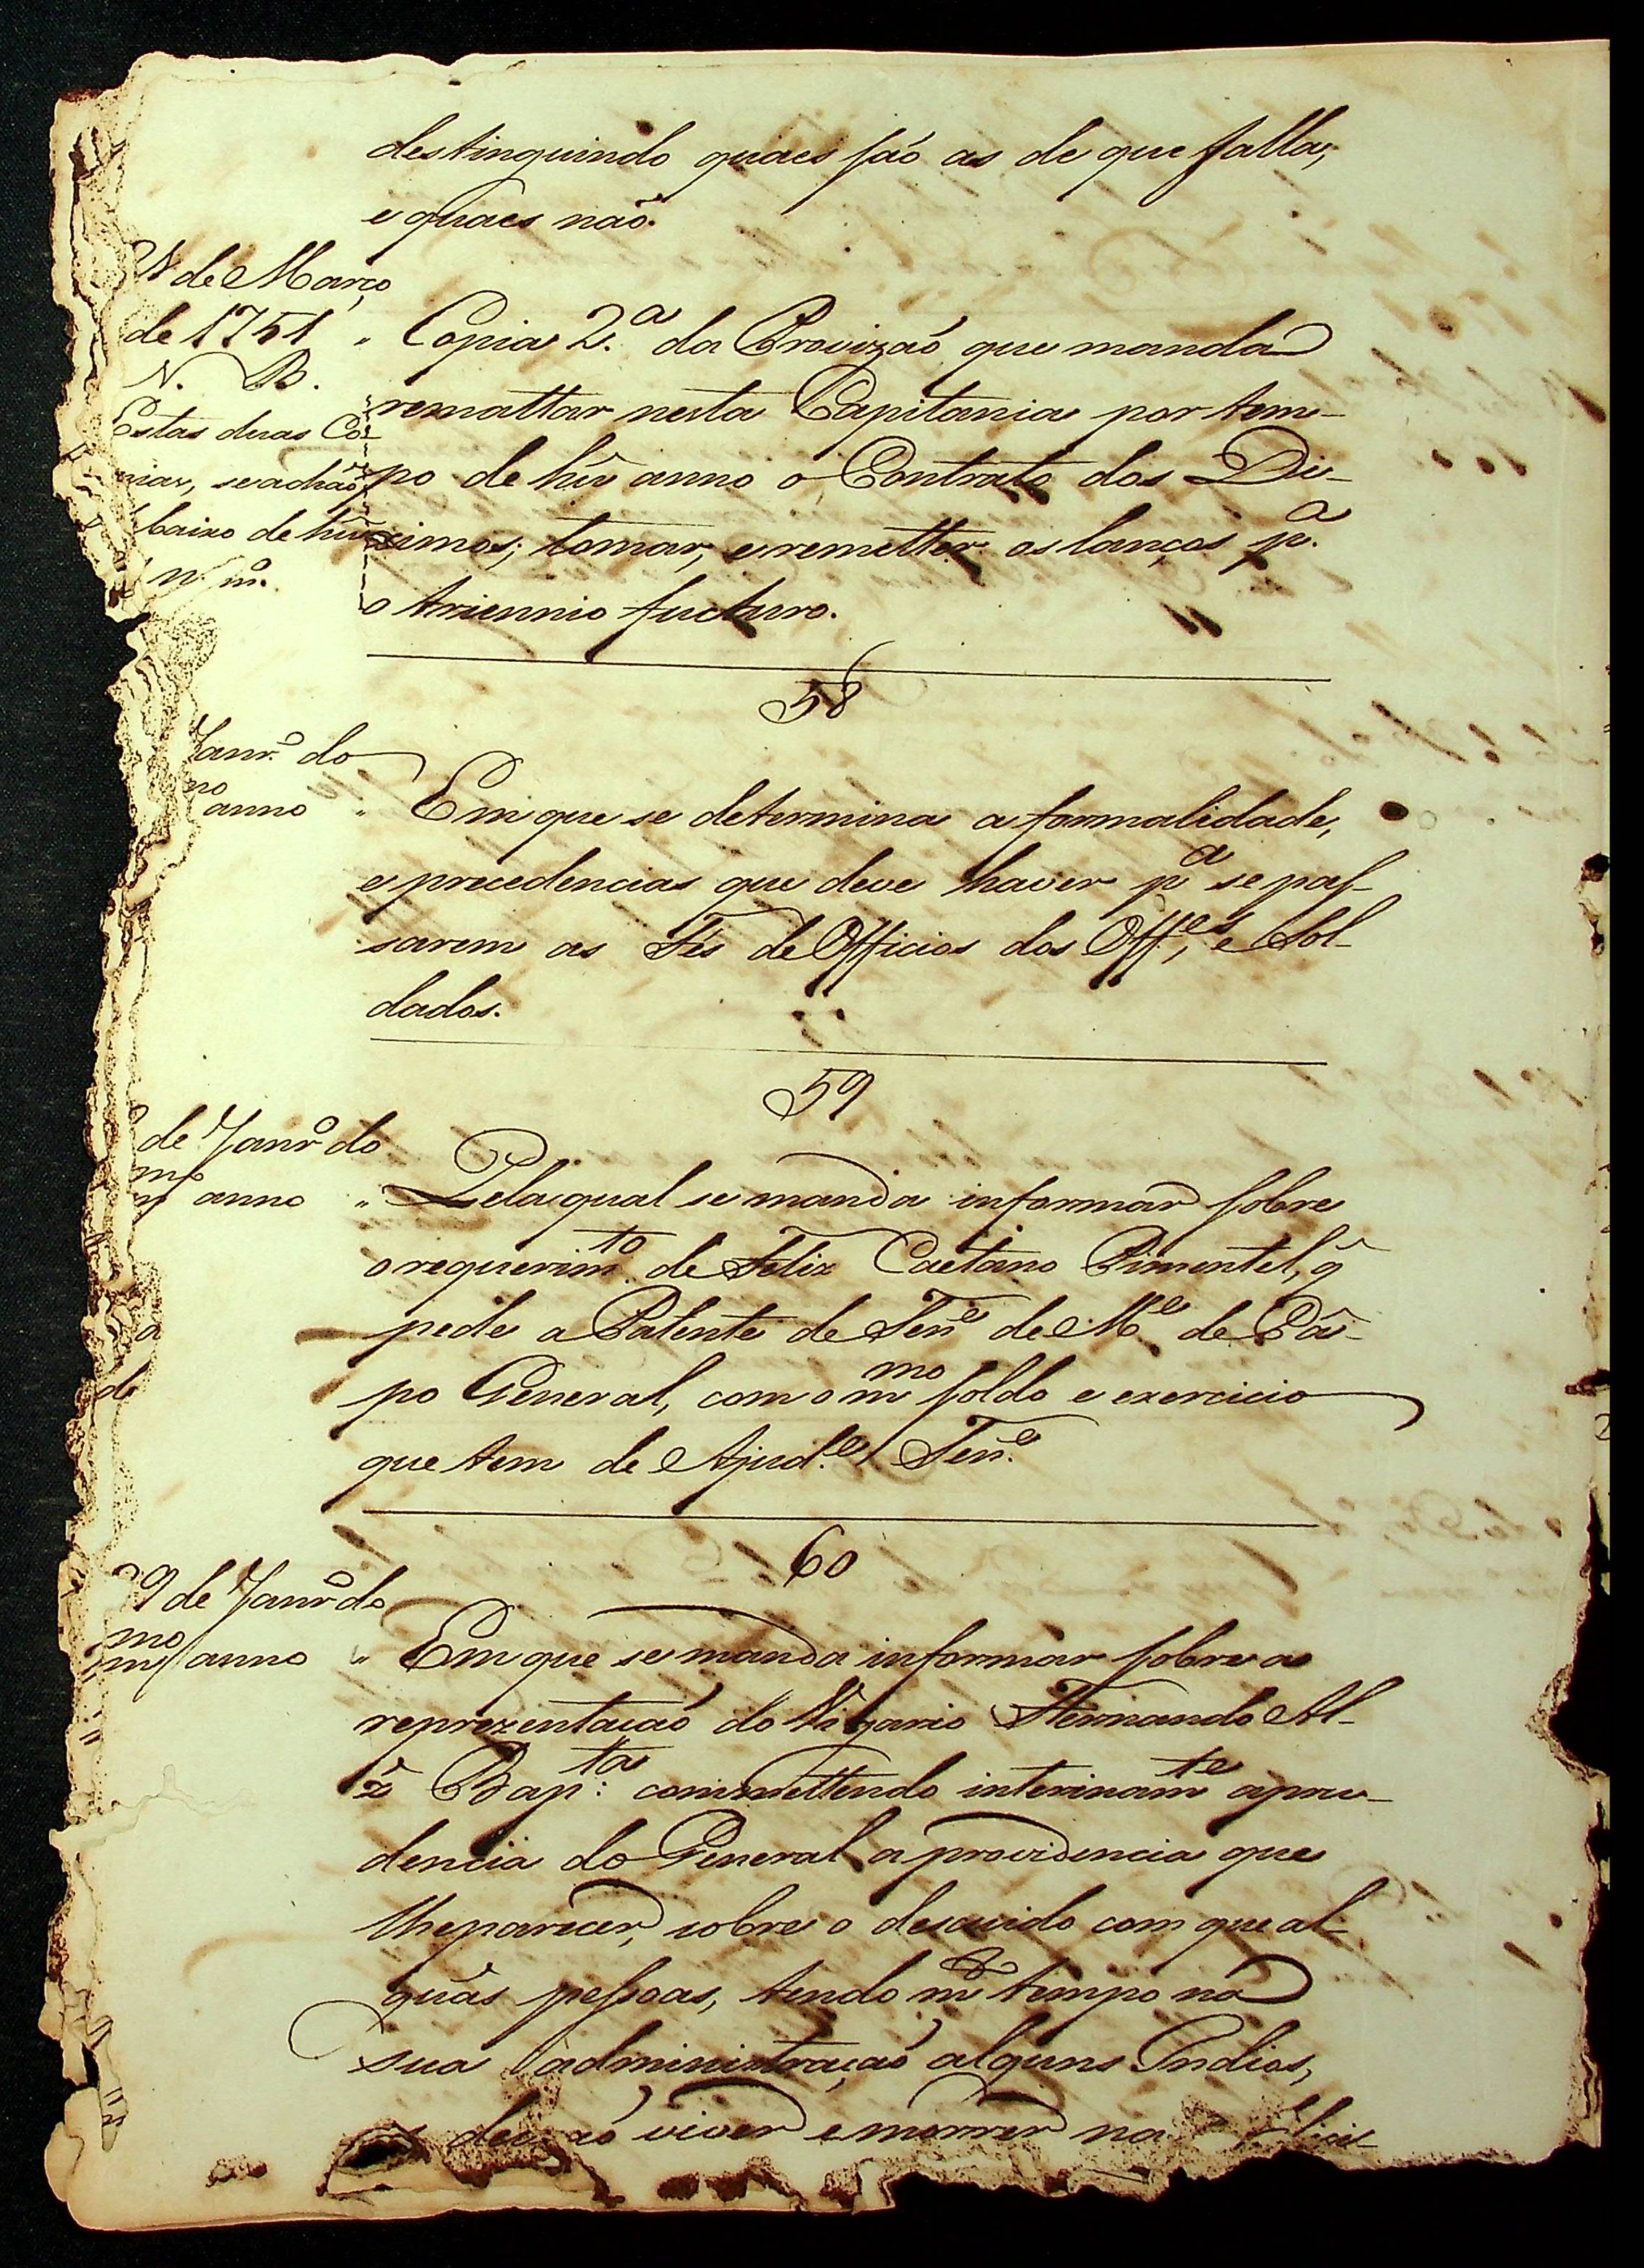 destinguindo quaes saõ as de que falla,
e quaes naõ.
de Março
de 1751 " Copia 2.ª da Provizaõ que manda
N. B.
Estas duas Co-
pias, se achaõ
baixo de hũ
n.º m.º
remattar nesta Capitania por tem-
po de hũ anno o Contrato dos Di-
zimos; tomar, e remetter os lanços p.ª
o triennio fucturo.
58
Janr.º do
mo anno " Em que se determina a formalidade,
e precedencias que deve haver pª se pas-
sarem as Fés de Officios dos Off.es, e Sol-
dados.
59
de Janr.º do
m.mo anno " Pela qual se manda informar sobre
o requerim.to de Feliz Caetano Pimentel, q̃
pede a Patente de Ten.e de M.e de Cã-
po General, com o m.mo soldo e exercicio
que tem de Ajud.e Ten.e
60
9 de Janr.º do
m.mo anno " Em que se manda informar sobre a
reprezentaçaõ do Vigario Fernando Al-
z̃ Bap.ta: commettendo interinam.te a pru-
dencia do General a providencia que
lhe parecer, sobre o descuido com que al-
guãs pessoas, tendo m.to tempo na
sua administraçaõ alguns Indios,
viver e morrer na